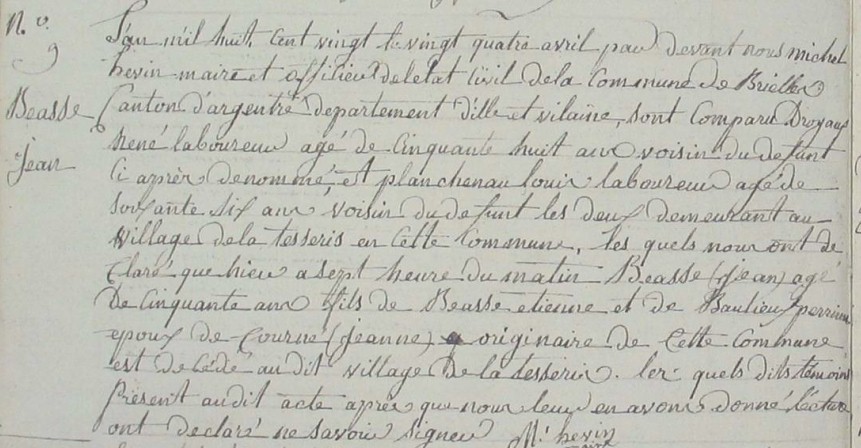 N.o
9
Beasse
Jean
L'an mil huit cent vingt le vingt quatre avril par devant nous michel
hevin maire et officier de letat civil de la Commune de Brielles
Canton d'argentré departement d'ille et vilaine, sont Comparu Droyaux
René laboureur agé de Cinquante huit ans voisin du defunt
Ci après denommé, et planchenau louis laboureur agé de
soixante six ans voisin du defunt les deux demeurant au
village de la tesseris en Cette Commune, les quels nous ont dé
Claré que hier a sept heure du matin Beasse (jean) agé
De Cinquante ans fils de Beasse etienne et de Baulieux perrine
epoux de Courné (jeanne) originaire de Cette Commune
est décédé au dit village De la tesserie. les quels dits témoins
Présent au dit acte après que nous leur en avons donné lécture
ont declaré ne savoir signer M.l hevin